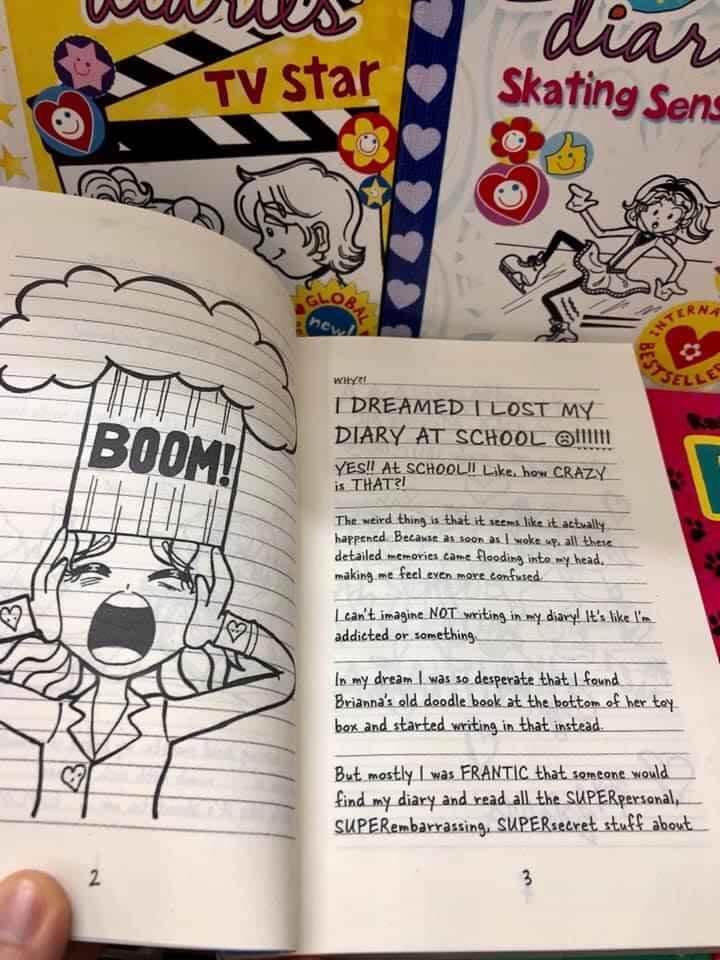 diaries
TV Star
Skating
GLOBAL
new!
BESTSELLER
BOOM!
2
WHY?!
I DREAMED I LOST MY
DIARY AT SCHOOL ☹!!!!!!
YES!! At SCHOOL!! Like, how CRAZY
is THAT?!
The weird thing is that it seems like it actually
happened. Because as soon as I woke up, all these
detailed memories came flooding into my head,
making me feel even more confused.
I can't imagine NOT writing in my diary! It's like I'm
addicted or something.
In my dream I was so desperate that I found
Brianna's old doodle book at the bottom of her toy
box and started writing in that instead.
But mostly I was FRANTIC that someone would
find my diary and read all the SUPERpersonal,
SUPERembarrassing, SUPERsecret stuff about
3